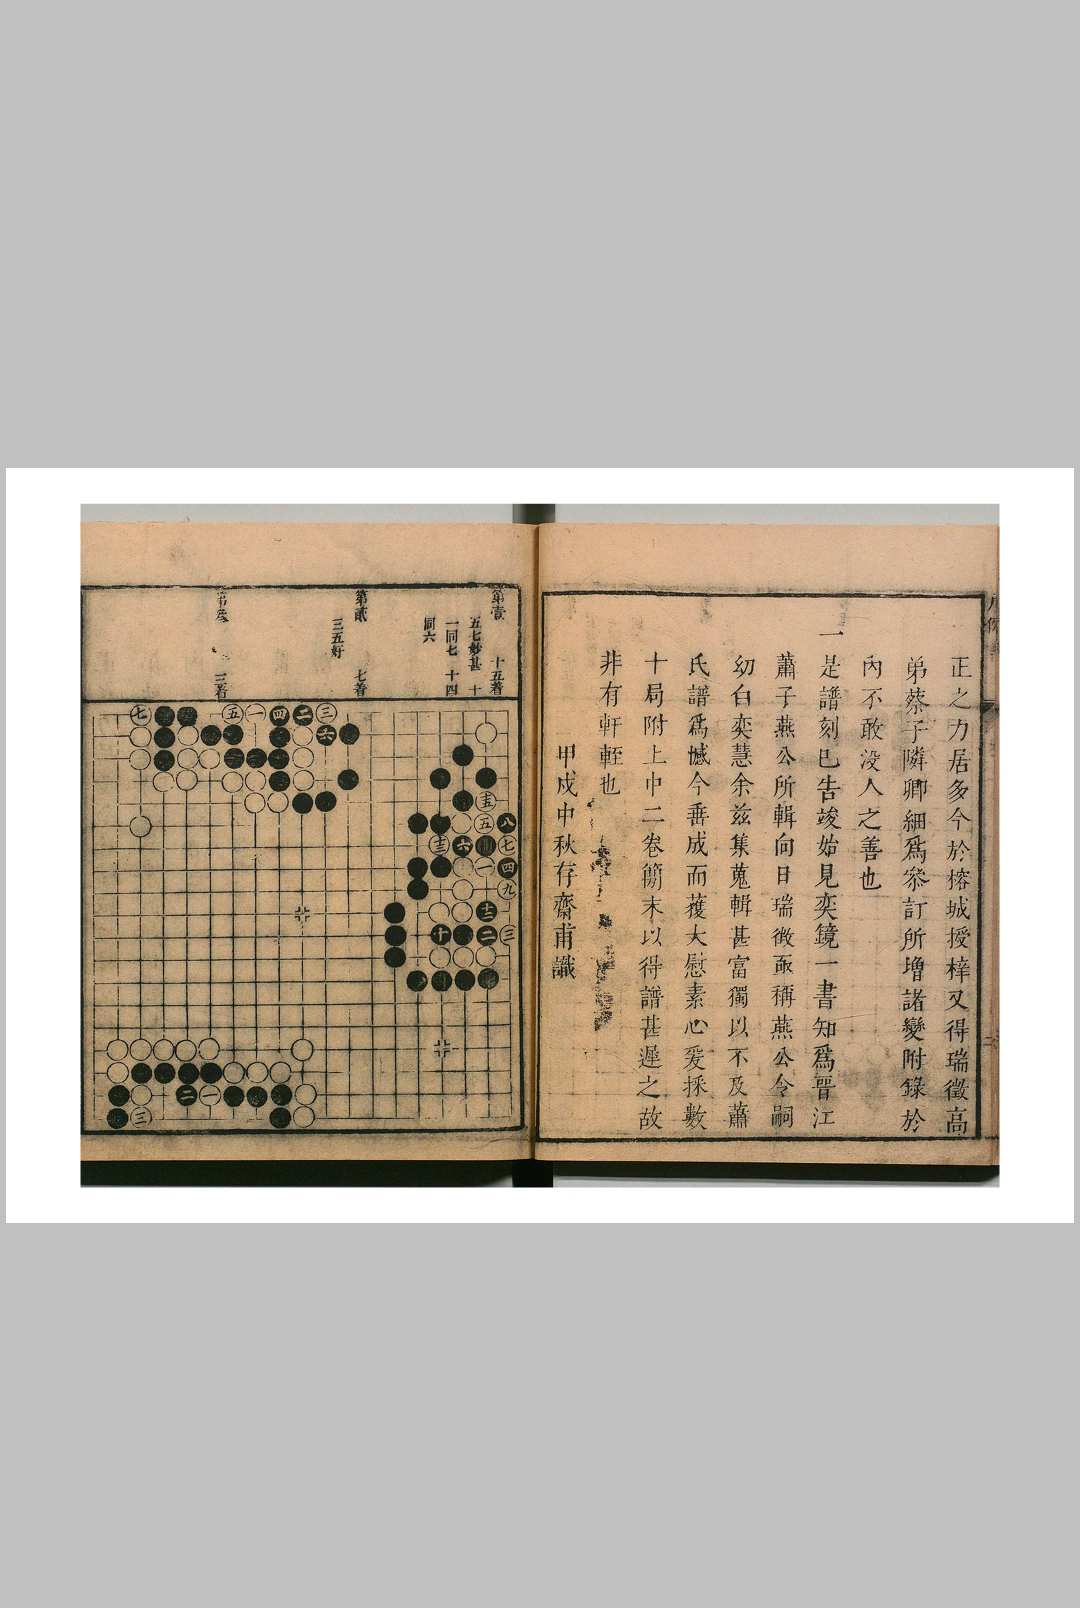 正之力居多今於榕城授梓又得瑞徵高
弟蔡子隣卿細爲叅訂所增諸變附錄於
內不敢没人之善也
一是譜刻已告竣始見奕鏡一書知爲晉江
蕭子燕公所輯向日瑞徴亟稱燕公令嗣
幼白奕慧余兹集蒐輯甚富獨以不及蕭
氏譜爲憾今垂成而獲大慰素心爰採數
十局附上中二卷簡末以得譜甚遲之故
非有軒輊也
甲戍中秋存齋甫識
第壹 十五着
五七妙甚 十
一同七 十四
同六
第貳 七着
三五好
三着
七 五 一 四 二 三
六
五
五 八
三 六 七
一 四
九
二
十 二 三
二 一
三